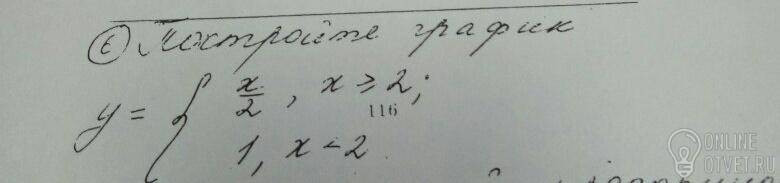 6 Постройте график
y = { x/2, x ≥ 2;
116
1, x < 2
ONLINE
OTVET.RU